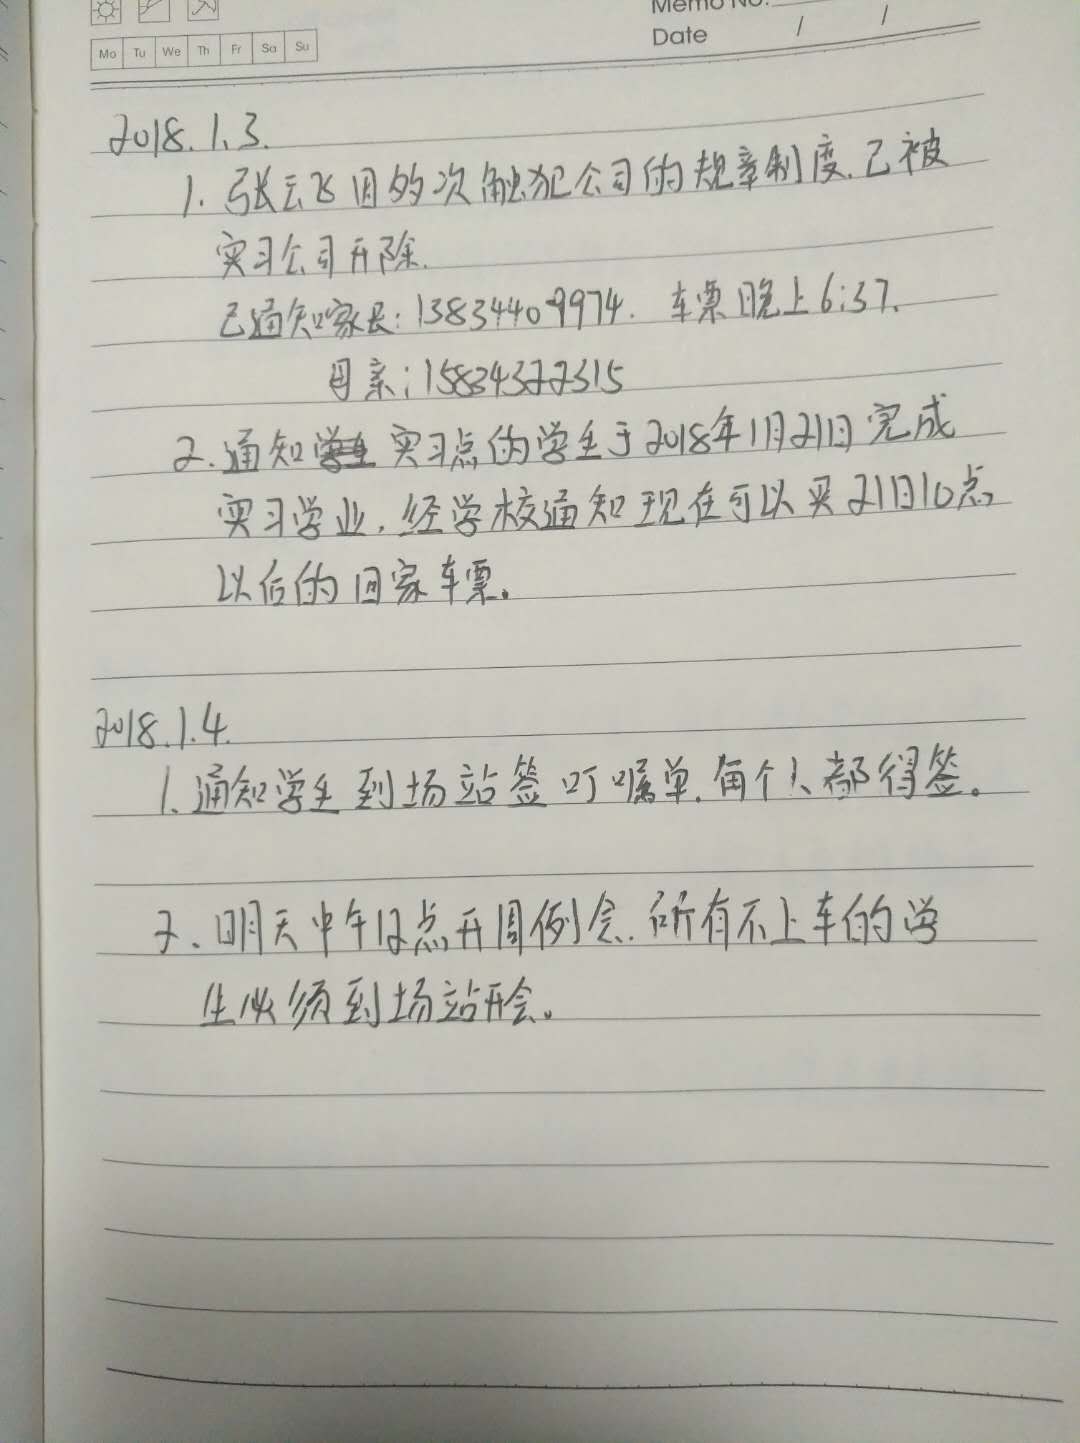 Memo No.
Mo Tu We Th Fr Sa Su
Date / /
2018.1.3.
1. 张云飞因多次触犯公司的规章制度.已被
实习公司开除.
已通知家长:13834409974. 车票晚上6:37.
母亲:15834322315
2.通知学生实习点的学生于2018年1月21日完成
实习学业.经学校通知现在可以买21日10点
以后的回家车票。
2018.1.4.
1.通知学生到场站签叮嘱单.每个人都得签。
2、明天中午12点开周例会.所有不上车的学
生必须到场站开会。